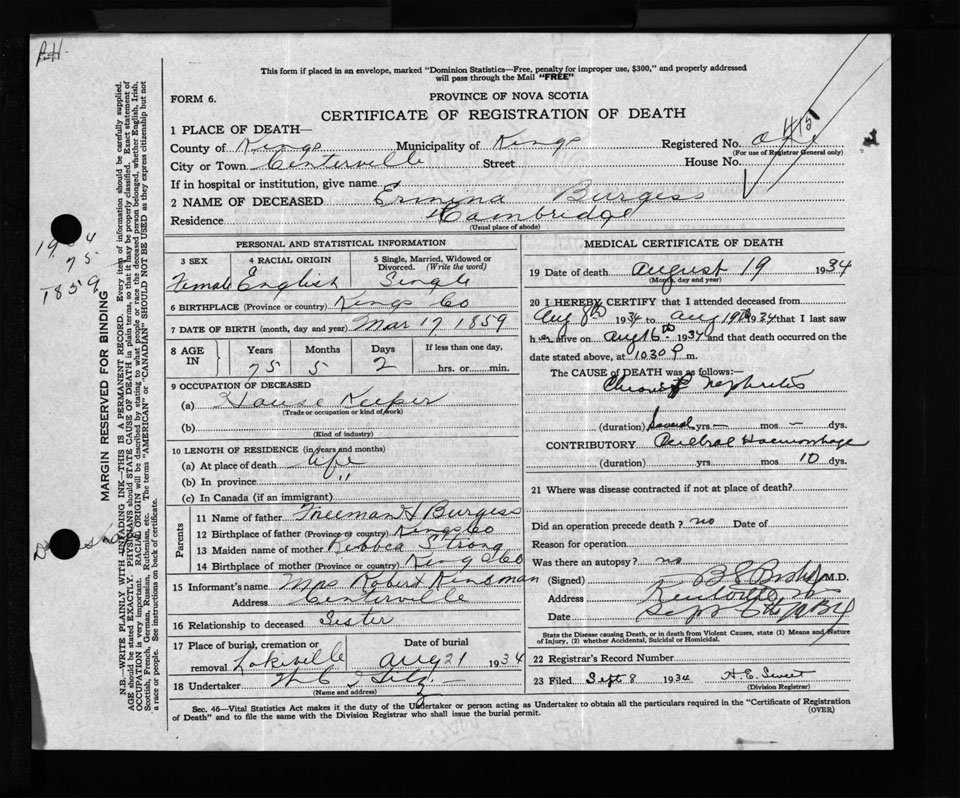 This form if placed in an envelope, marked "Dominion Statistics—Free, penalty for improper use, $300," and properly addressed
will pass through the Mail "FREE"
FORM 6.
PROVINCE OF NOVA SCOTIA
CERTIFICATE OF REGISTRATION OF DEATH
1 PLACE OF DEATH—
County of Kings Municipality of Kings Registered No.
(For use of Registrar General only)
City or Town Centerville Street House No.
If in hospital or institution, give name
2 NAME OF DECEASED Ermina Burgess
Residence Cambridge
(Usual place of abode)
PERSONAL AND STATISTICAL INFORMATION
3 SEX 4 RACIAL ORIGIN 5 Single, Married, Widowed or Divorced. (Write the word)
Female English Single
6 BIRTHPLACE (Province or country) Kings Co
7 DATE OF BIRTH (month, day and year) Mar 17 1859
8 AGE IN Years Months Days If less than one day,
75 5 2 hrs. or min.
9 OCCUPATION OF DECEASED
(a) House Keeper
(Trade or occupation or kind of work)
(b)
(Kind of industry)
10 LENGTH OF RESIDENCE (in years and months)
(a) At place of death life
(b) In province "
(c) In Canada (if an immigrant)
Parents
11 Name of father Freeman Burgess
12 Birthplace of father (Province or country) Kings Co
13 Maiden name of mother Rebbca Strong
14 Birthplace of mother (Province or country) Kings Co
15 Informant's name Mrs Robert Kinsman
Address Centerville
16 Relationship to deceased Sister
17 Place of burial, cremation or removal Lakeville Date of burial Aug 21 1934
18 Undertaker
(Name and address)
MEDICAL CERTIFICATE OF DEATH
19 Date of death August 19 1934
(Month, day and year)
20 I HEREBY CERTIFY that I attended deceased from
Aug 8th 1934 to Aug 19th 1934 that I last saw
her alive on Aug 16th 1934 and that death occurred on the
date stated above, at 10.30 P m.
The CAUSE of DEATH was as follows:—
Chronic nephritis
(duration) Several yrs.— mos — dys.
CONTRIBUTORY Cerebral Haemorrhage
(duration) yrs. mos 10 dys.
21 Where was disease contracted if not at place of death?
Did an operation precede death? no Date of
Reason for operation
Was there an autopsy? no
(Signed) M.D.
Address Kentville
Date Sept
State the Disease causing Death, or in death from Violent Causes, state (1) Means and Nature
of Injury, (2) whether Accidental, Suicidal or Homicidal.
22 Registrar's Record Number
23 Filed Sept 8 1934 H.E. Sweet
(Division Registrar)
Sec. 46—Vital Statistics Act makes it the duty of the Undertaker or person acting as Undertaker to obtain all the particulars required in the "Certificate of Registration
of Death" and to file the same with the Division Registrar who shall issue the burial permit. (OVER)
MARGIN RESERVED FOR BINDING
N.B.—WRITE PLAINLY WITH UNFADING INK—THIS IS A PERMANENT RECORD. Every item of information should be carefully supplied.
AGE should be stated EXACTLY. PHYSICIANS should STATE CAUSE OF DEATH in plain terms, so that it may be properly classified. Exact statement of
OCCUPATION is very important. RACIAL ORIGIN will be described by stating to what people or race the deceased person belonged, whether English, Irish,
Scottish, French, German, Russian, Ruthenian, etc. The terms "AMERICAN" or "CANADIAN" SHOULD NOT BE USED as they express citizenship but not
a race or people. See instructions on back of certificate.
75
1859